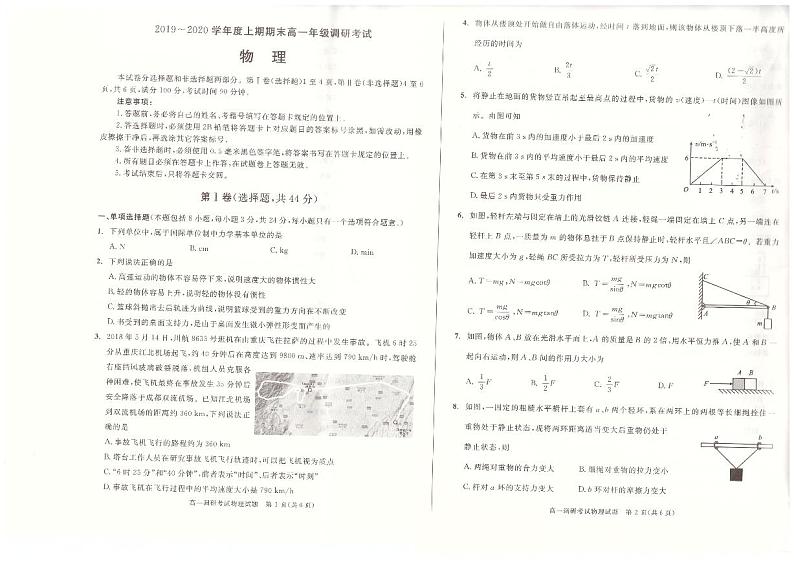 2019～2020学年度上期期末高一年级调研考试
物 理
本试卷分选择题和非选择题两部分。第Ⅰ卷(选择题)1至4页,第Ⅱ卷(非选择题)4至6
页,共6页,满分100分,考试时间90分钟。
注意事项:
1.答题前,务必将自己的姓名、考籍号填写在答题卡规定的位置上。
2.答选择题时,必须使用2B铅笔将答题卡上对应题目的答案标号涂黑,如需改动,用橡
皮擦擦干净后,再选涂其它答案标号。
3.答非选择题时,必须使用0.5毫米黑色签字笔,将答案书写在答题卡规定的位置上。
4.所有题目必须在答题卡上作答,在试题卷上答题无效。
5.考试结束后,只将答题卡交回。
第Ⅰ卷(选择题,共44分)
一、单项选择题(本题包括8小题,每小题3分,共24分,每小题只有一个选项符合题意。)
1. 下列单位中,属于国际单位制中力学基本单位的是
A. N B. cm C. kg D. min
2. 下列说法正确的是
A. 高速运动的物体不容易停下来,说明速度大的物体惯性大
B. 轻的物体容易上升,说明轻的物体没有惯性
C. 篮球斜抛出去后轨迹为曲线,说明篮球受到的重力方向在不断改变
D. 书受到的桌面支持力,是由于桌面发生微小弹性形变而产生的
3. 2018年5月14日,川航8633号班机在由重庆飞往拉萨的过程中发生事故。飞机6时25
分从重庆江北机场起飞,约40分钟后在高度达到9800 m、速率达到790 km/h时,驾驶舱
右座挡风玻璃破裂脱落,机组人员克服各
种困难,使飞机最终在事故发生35分钟后
安全降落于成都双流机场。已知江北机场
到双流机场的距离约360 km,下列说法正
确的是
A. 事故飞机飞行的路程约为360 km
B. 塔台工作人员在研究事故飞机飞行轨迹时,可以把飞机视为质点
C. “6时25分”和“40分钟”,前者表示“时间”、后者表示“时刻”
D. 事故飞机在飞行过程中的平均速度大小是790 km/h
高一调研考试物理试题 第1页(共6页)
4. 物体从楼顶处开始做自由落体运动,经时间t落到地面,则该物体从楼顶下落一半高度所
经历的时间为
A. t/2 B. 2t/3 C. √2t/2 D. (2-√2)t/2
5. 将静止在地面的货物竖直吊起至最高点的过程中,货物的v(速度)—t(时间)图像如图所
示。由图可知
A. 货物在前3 s内的加速度小于最后2 s内的加速度
B. 货物在前3 s内的平均速度小于最后2 s内的平均速度
C. 在第3 s末至第5 s末的过程中,货物保持静止
D. 最后2 s内货物只受重力作用
v/m·s⁻¹
6
0 1 2 3 4 5 6 7 t/s
6. 如图,轻杆左端与固定在墙上的光滑铰链A连接,轻绳一端固定在墙上C点,另一端连在
轻杆上B点,一质量为m的物体悬挂于B点保持静止时,轻杆水平且∠ABC=θ。若重力
加速度大小为g,轻绳BC所受拉力为T,轻杆所受压力为N,则
A. T=mg,N=mgcotθ B. T=mg/sinθ,N=mgcotθ
C. T=mg/cosθ,N=mgtanθ D. T=mg/sinθ,N=mgtanθ
C
θ
A
B
m
7. 如图,物体A、B放在光滑水平面上,A的质量是B的2倍,用水平恒力推A,使A和B一
起向右运动,则A、B间的作用力大小为
A. 1/3 F B. 1/2 F C. 2/3 F D. F
F
A B
8. 如图,一固定的粗糙水平横杆上套有a、b两个轻环,系在两环上的两根等长细绳拴住一
重物处于静止状态,现将两环距离适当变大后重物仍处于
静止状态,则
A. 两绳对重物的合力变大 B. 细绳对重物的拉力变小
C. 杆对a环的支持力变大 D. b环对杆的摩擦力变大
a b
高一调研考试物理试题 第2页(共6页)